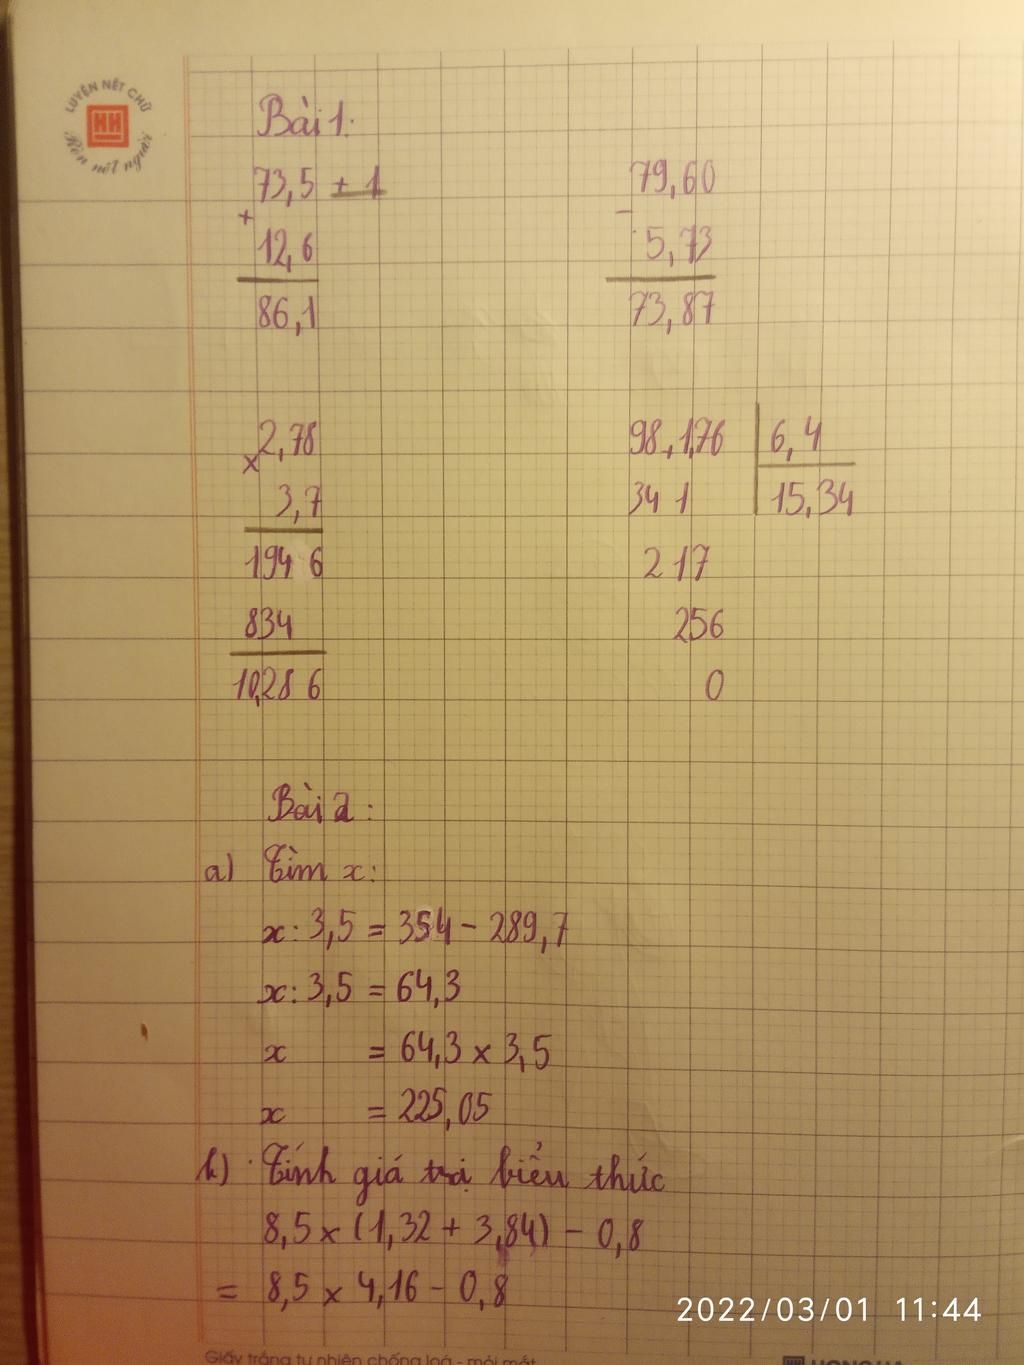 LUYỆN NÉT CHỮ
HH
Rèn nết người
Bài 1:
73,5 + 1
+
12,6
86,1
79,60
-
5,73
73,87
2,78
x
3,7
194 6
834
10,28 6
98,176 6,4
34 1 15,34
2 17
256
0
Bài 2:
a) Tìm x:
x: 3,5 = 354 - 289,7
x: 3,5 = 64,3
x = 64,3 x 3,5
x = 225,05
b) Tính giá trị biểu thức
8,5 x (1,32 + 3,84) - 0,8
= 8,5 x 4,16 - 0,8
2022/03/01 11:44
Giấy trắng tự nhiên chống loá - mỏi mắt